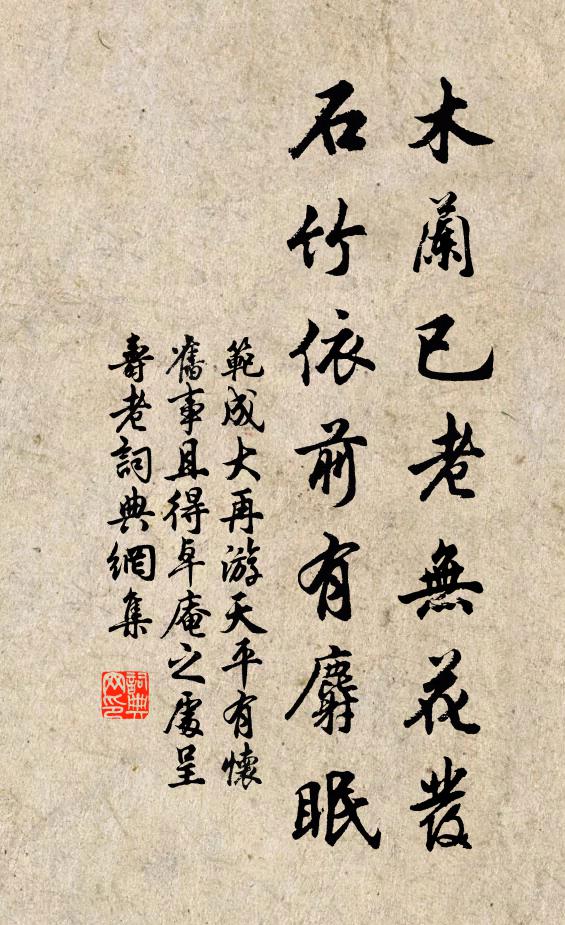 木蘭已老無花發
石竹依前有麝眠
範成大再游天平有懷
舊事且得卓庵之處呈
壽老詞典網集
詞典
网印